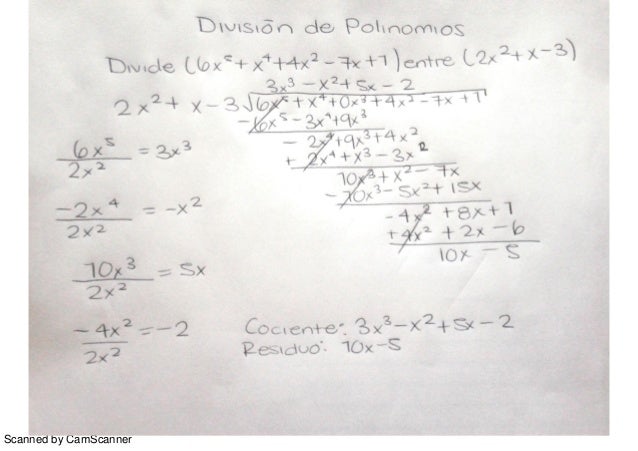 División de Polinomios
Divide (6x⁵ + x⁴ + 4x² - 7x + 1) entre (2x² + x - 3)
3x³ - x² + 5x - 2
2x² + x - 3 √6x⁵ + x⁴ + 0x³ + 4x² - 7x + 1
- 6x⁵ - 3x⁴ + 9x³
6x⁵/2x² = 3x³
- 2x⁴ + 9x³ + 4x²
+ 2x⁴ + x³ - 3x²
10x³ + x² - 7x
-2x⁴/2x² = -x²
- 10x³ - 5x² + 15x
- 4x² + 8x + 1
+ 4x² + 2x - 6
10x - 5
10x³/2x² = 5x
-4x²/2x² = -2
Cociente: 3x³ - x² + 5x - 2
Residuo: 10x - 5
Scanned by CamScanner